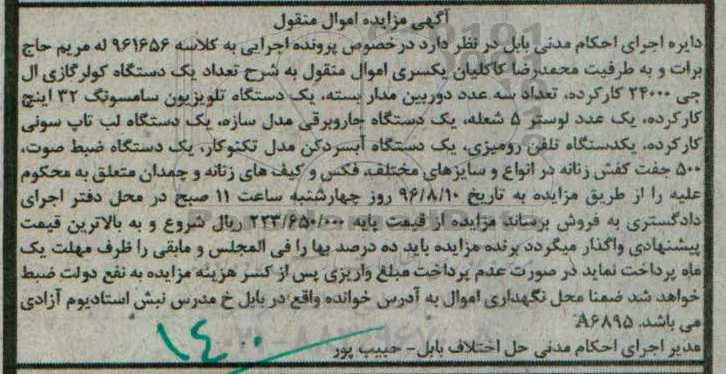 آگهی مزایده اموال منقول
دایره اجرای احکام مدنی بابل در نظر دارد درخصوص پرونده اجرایی به کلاسه ۹۶۱۶۵۶ له مریم حاج
برات و به طرفیت محمدرضا کاکلیان یکسری اموال منقول به شرح تعداد یک دستگاه کولرگازی ال
جی ۲۴۰۰۰ کارکرده، تعداد سه عدد دوربین مدار بسته، یک دستگاه تلویزیون سامسونگ ۳۲ اینچ
کارکرده، یک عدد لوستر ۵ شعله، یک دستگاه جاروبرقی مدل سازه، یک دستگاه لب تاپ سونی
کارکرده، یکدستگاه تلفن رومیزی، یک دستگاه آبسردکن مدل تکنوکار، یک دستگاه ضبط صوت،
۵۰۰ جفت کفش زنانه در انواع و سایزهای مختلف، فکس و کیف های زنانه و چمدان متعلق به محکوم
علیه را از طریق مزایده به تاریخ ۹۶/۸/۱۰ روز چهارشنبه ساعت ۱۱ صبح در محل دفتر اجرای
دادگستری به فروش برساند مزایده از قیمت پایه ۲۲۳/۶۵۰/۰۰۰ ریال شروع و به بالاترین قیمت
پیشنهادی واگذار میگردد برنده مزایده باید ده درصد بها را فی المجلس و مابقی را ظرف مهلت یک
ماه پرداخت نماید در صورت عدم پرداخت مبلغ واریزی پس از کسر هزینه مزایده به نفع دولت ضبط
خواهد شد ضمنا محل نگهداری اموال به آدرس خوانده واقع در بابل خ مدرس نبش استادیوم آزادی
می باشد. A۶۸۹۵
مدیر اجرای احکام مدنی حل اختلاف بابل- حبیب پور
۱۴۰۰